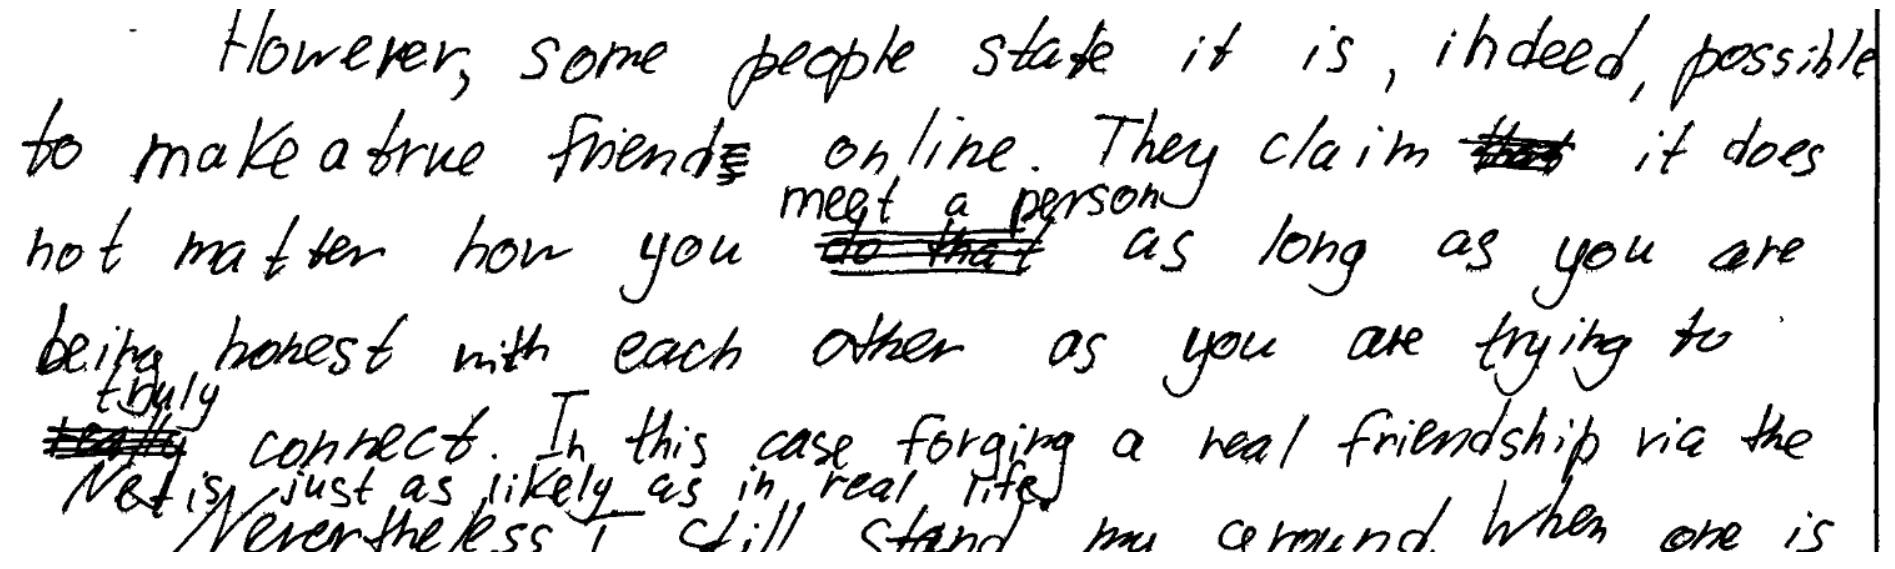 However, some people state it is, indeed, possible
to make a true friend online. They claim it does
not matter how you meet a person as long as you are
being honest with each other as you are trying to
truly connect. In this case forging a real friendship via the
Net is just as likely as in real life.
Nevertheless I still stand my ground. When one is